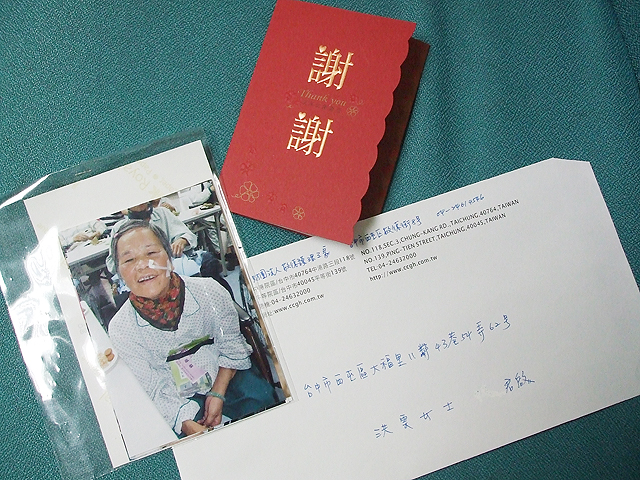 謝
Thank you
謝
NO.118,SEC.3,CHUNG-KANG RD.,TAICHUNG,40764,TAIWAN
NO.139,PING-TIEN STREET,TAICHUNG,40045,TAIWAN
TEL:04-24632000
http://www.ccgh.com.tw
院區/台中市40764中港路三段118號
院區/台中市40045平等街139號
04-24632000
www.ccgh.com.tw
台中市西屯區大福里11鄰43巷54弄62號
洪 女士 君啟